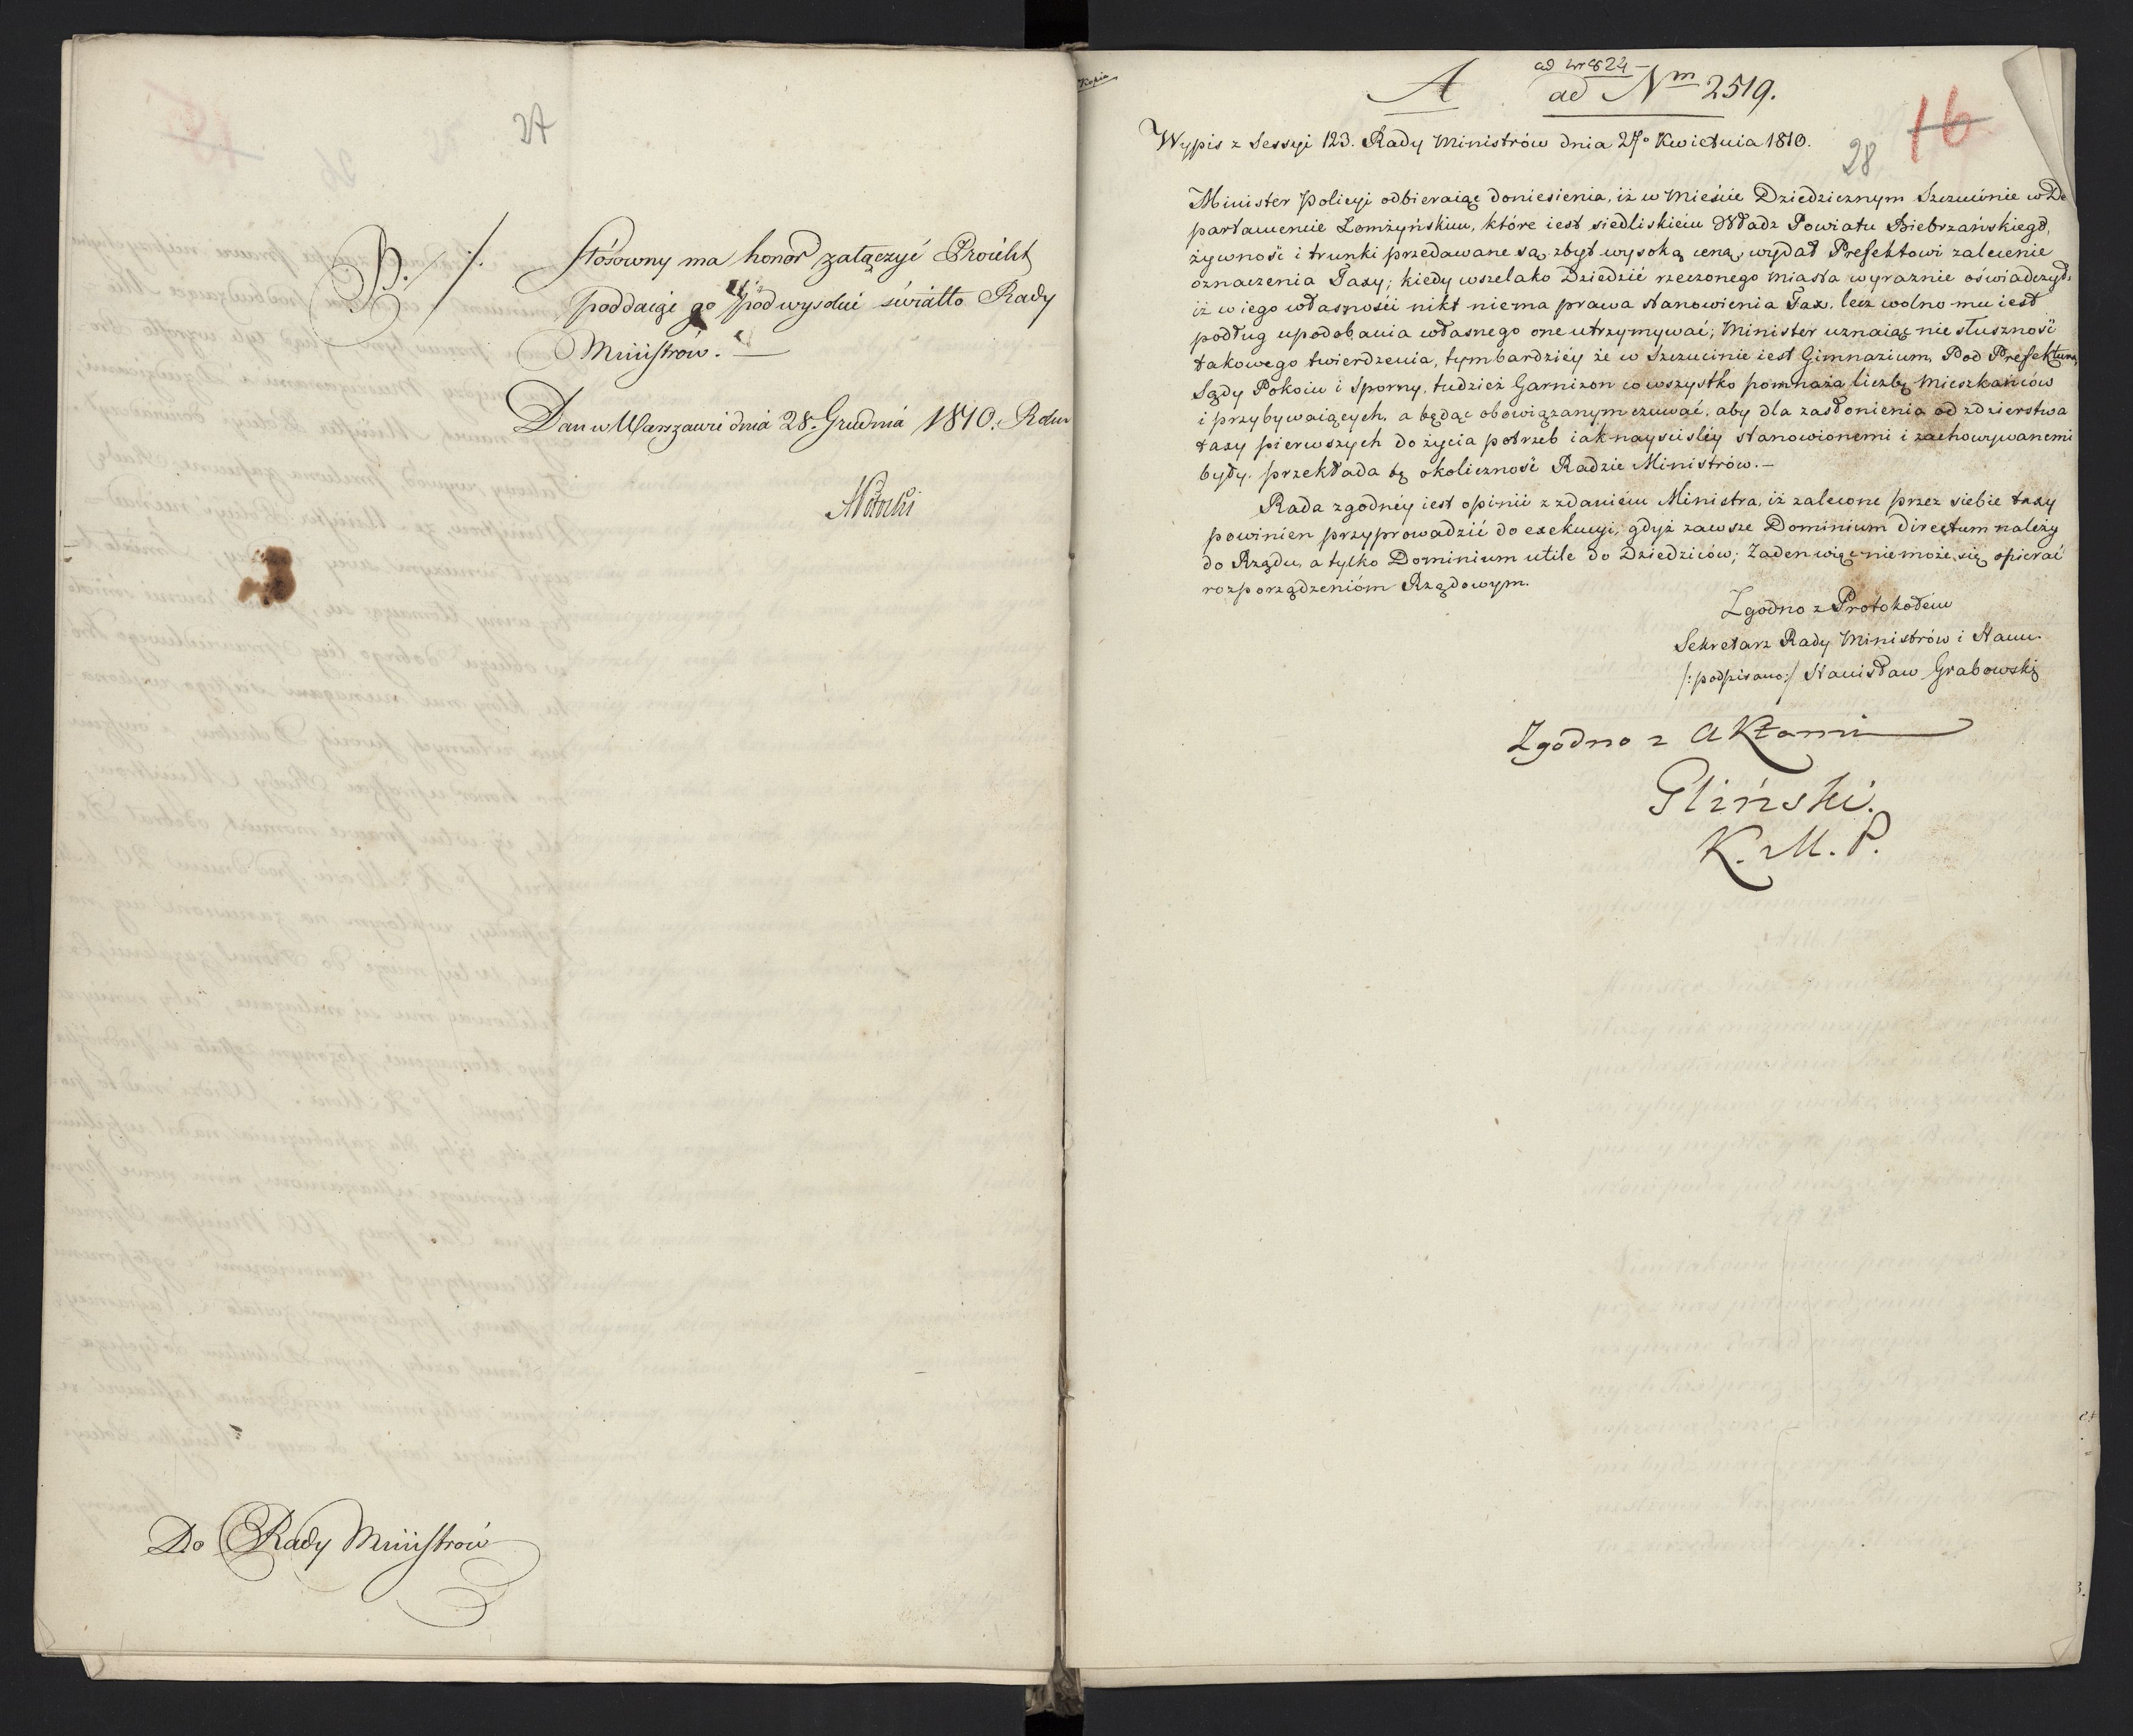 27
B. /.
Stósowny ma honor załączyć Proiekt
poddaiąc go pod wysokie światło Rady
Ministrów. —
Dan w Warszawie dnia 28. Grudnia 1810. Roku
Do Rady Ministrów
Kopia
A
ad Nr 824 —
ad Nrm 2519.
16
28
Wypis z Sessyi 123. Rady Ministrów dnia 27o Kwietnia 1810.
Minister Policyi odbieraiąc doniesienia, iż w Mieście Dziedzicznym Szczucinie w De
partamencie Łomżyńskim, które iest siedliskiem Władz Powiatu Biebrzańskiego,
żywność i trunki przedawane są, zbyt wysoką ceną, wydał Prefektowi zalecenie
oznaczenia Taxy; kiedy wszelako Dziedzić rzeczonego miasta wyraznie oświadczył,
iż w iego własności nikt niema prawa stanowienia Tax, lecz wolno mu iest
podług upodobania własnego one utrzymywać; Minister uznaiąc nie słuszność
takowego twierdzenia, tymbardziéy że w Szczucinie iest Gimnazium, Pod Prefektura,
Sądy Pokoiu i Sporny, tudzież Garnizon co wszystko pomnaża liczbę Mieszkańców
i przybywaiących, a będąc obowiązanym czuwać, aby dla zasłonienia od zdzierstwa
taxy pierwszych do życia potrzeb iak nayściśléy stanowionemi i zachowywanemi
były, przekłada tę okoliczność Radzie Ministrów. —
Rada zgodnéy iest opinii z zdaniem Ministra, iż zalecone przez siebie taxy
powinien przyprowadzić do exekucyi, gdyż zawsze Dominium directum należy
do Rządu, a tylko Dominium utile do Dziedziców; Żaden więc niemoże się opierać
rozporządzenióm Rządowym.
Zgodno z Protokołem
Sekretarz Rady Ministrów i Stanu.
/:podpisano:/ Stanisław Grabowski
Zgodno z Aktami
Gliński.
K. M. P.